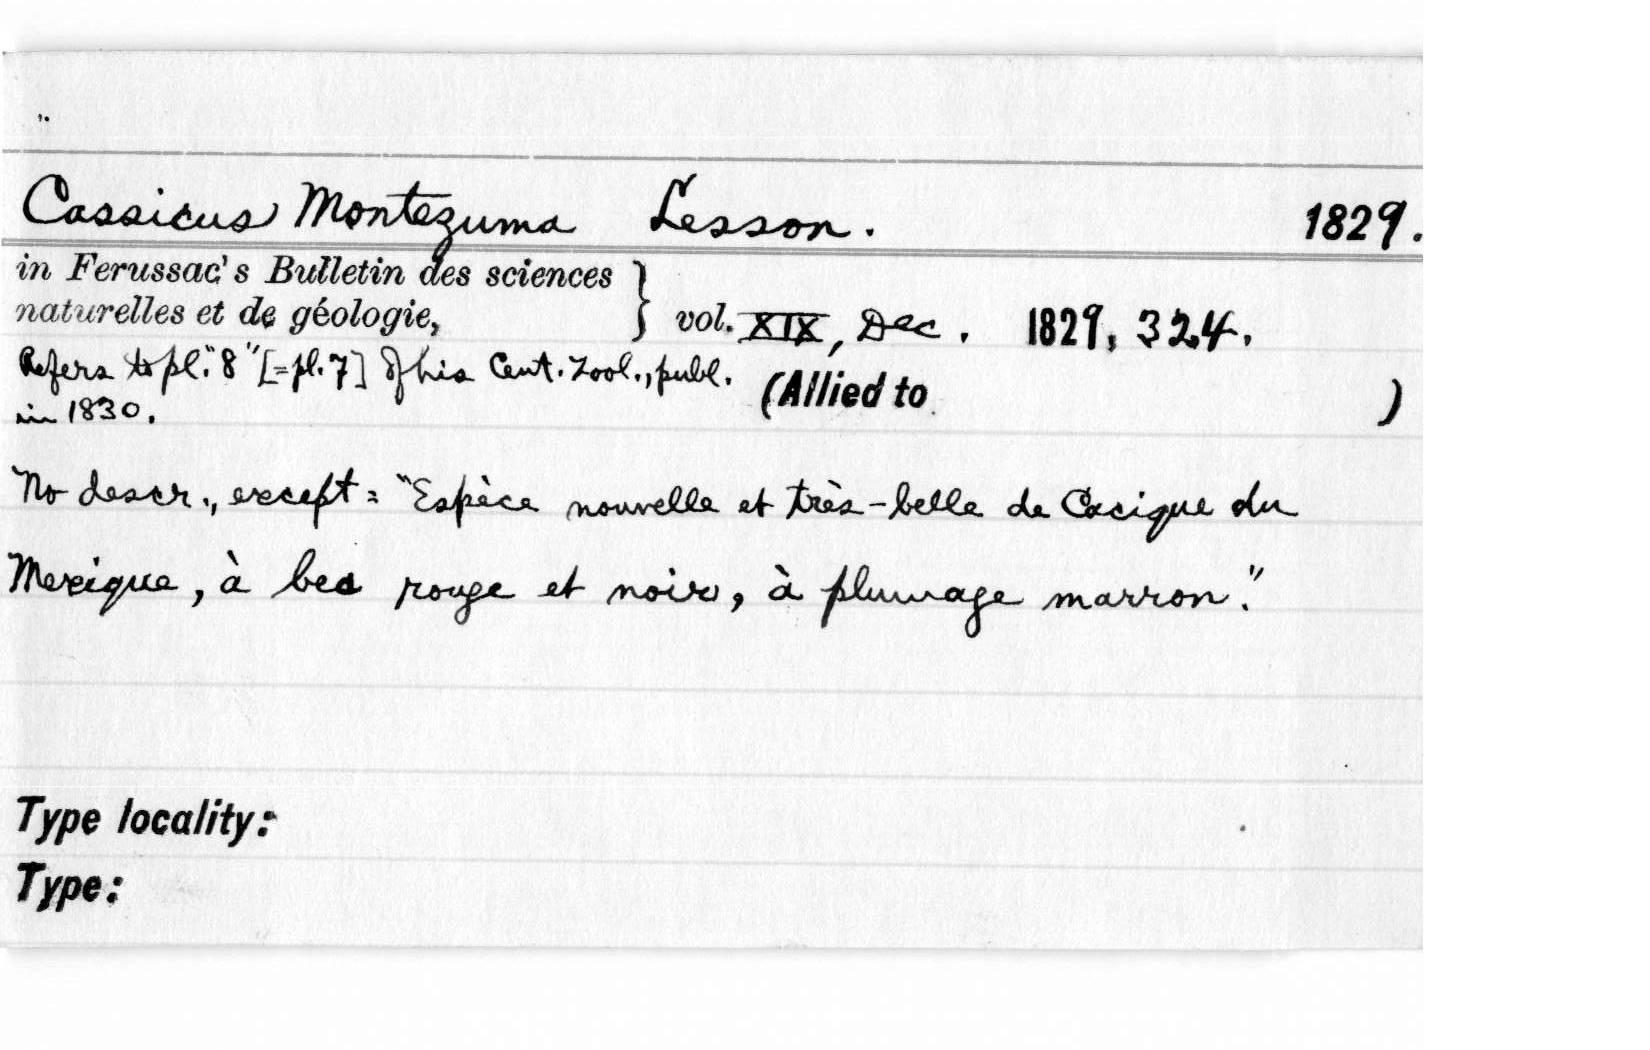 Cassicus Montezuma Lesson. 1829.
in Ferussac's Bulletin des sciences
naturelles et de géologie, } vol. XIX, Dec. 1829, 324.
Refers to pl. "8" [=pl. 7] of his Cent. Zool., publ.
in 1830. (Allied to )
No descr., except: "Espèce nouvelle et très-belle de Cacique du
Mexique, à bec rouge et noir, à plumage marron."
Type locality:
Type: